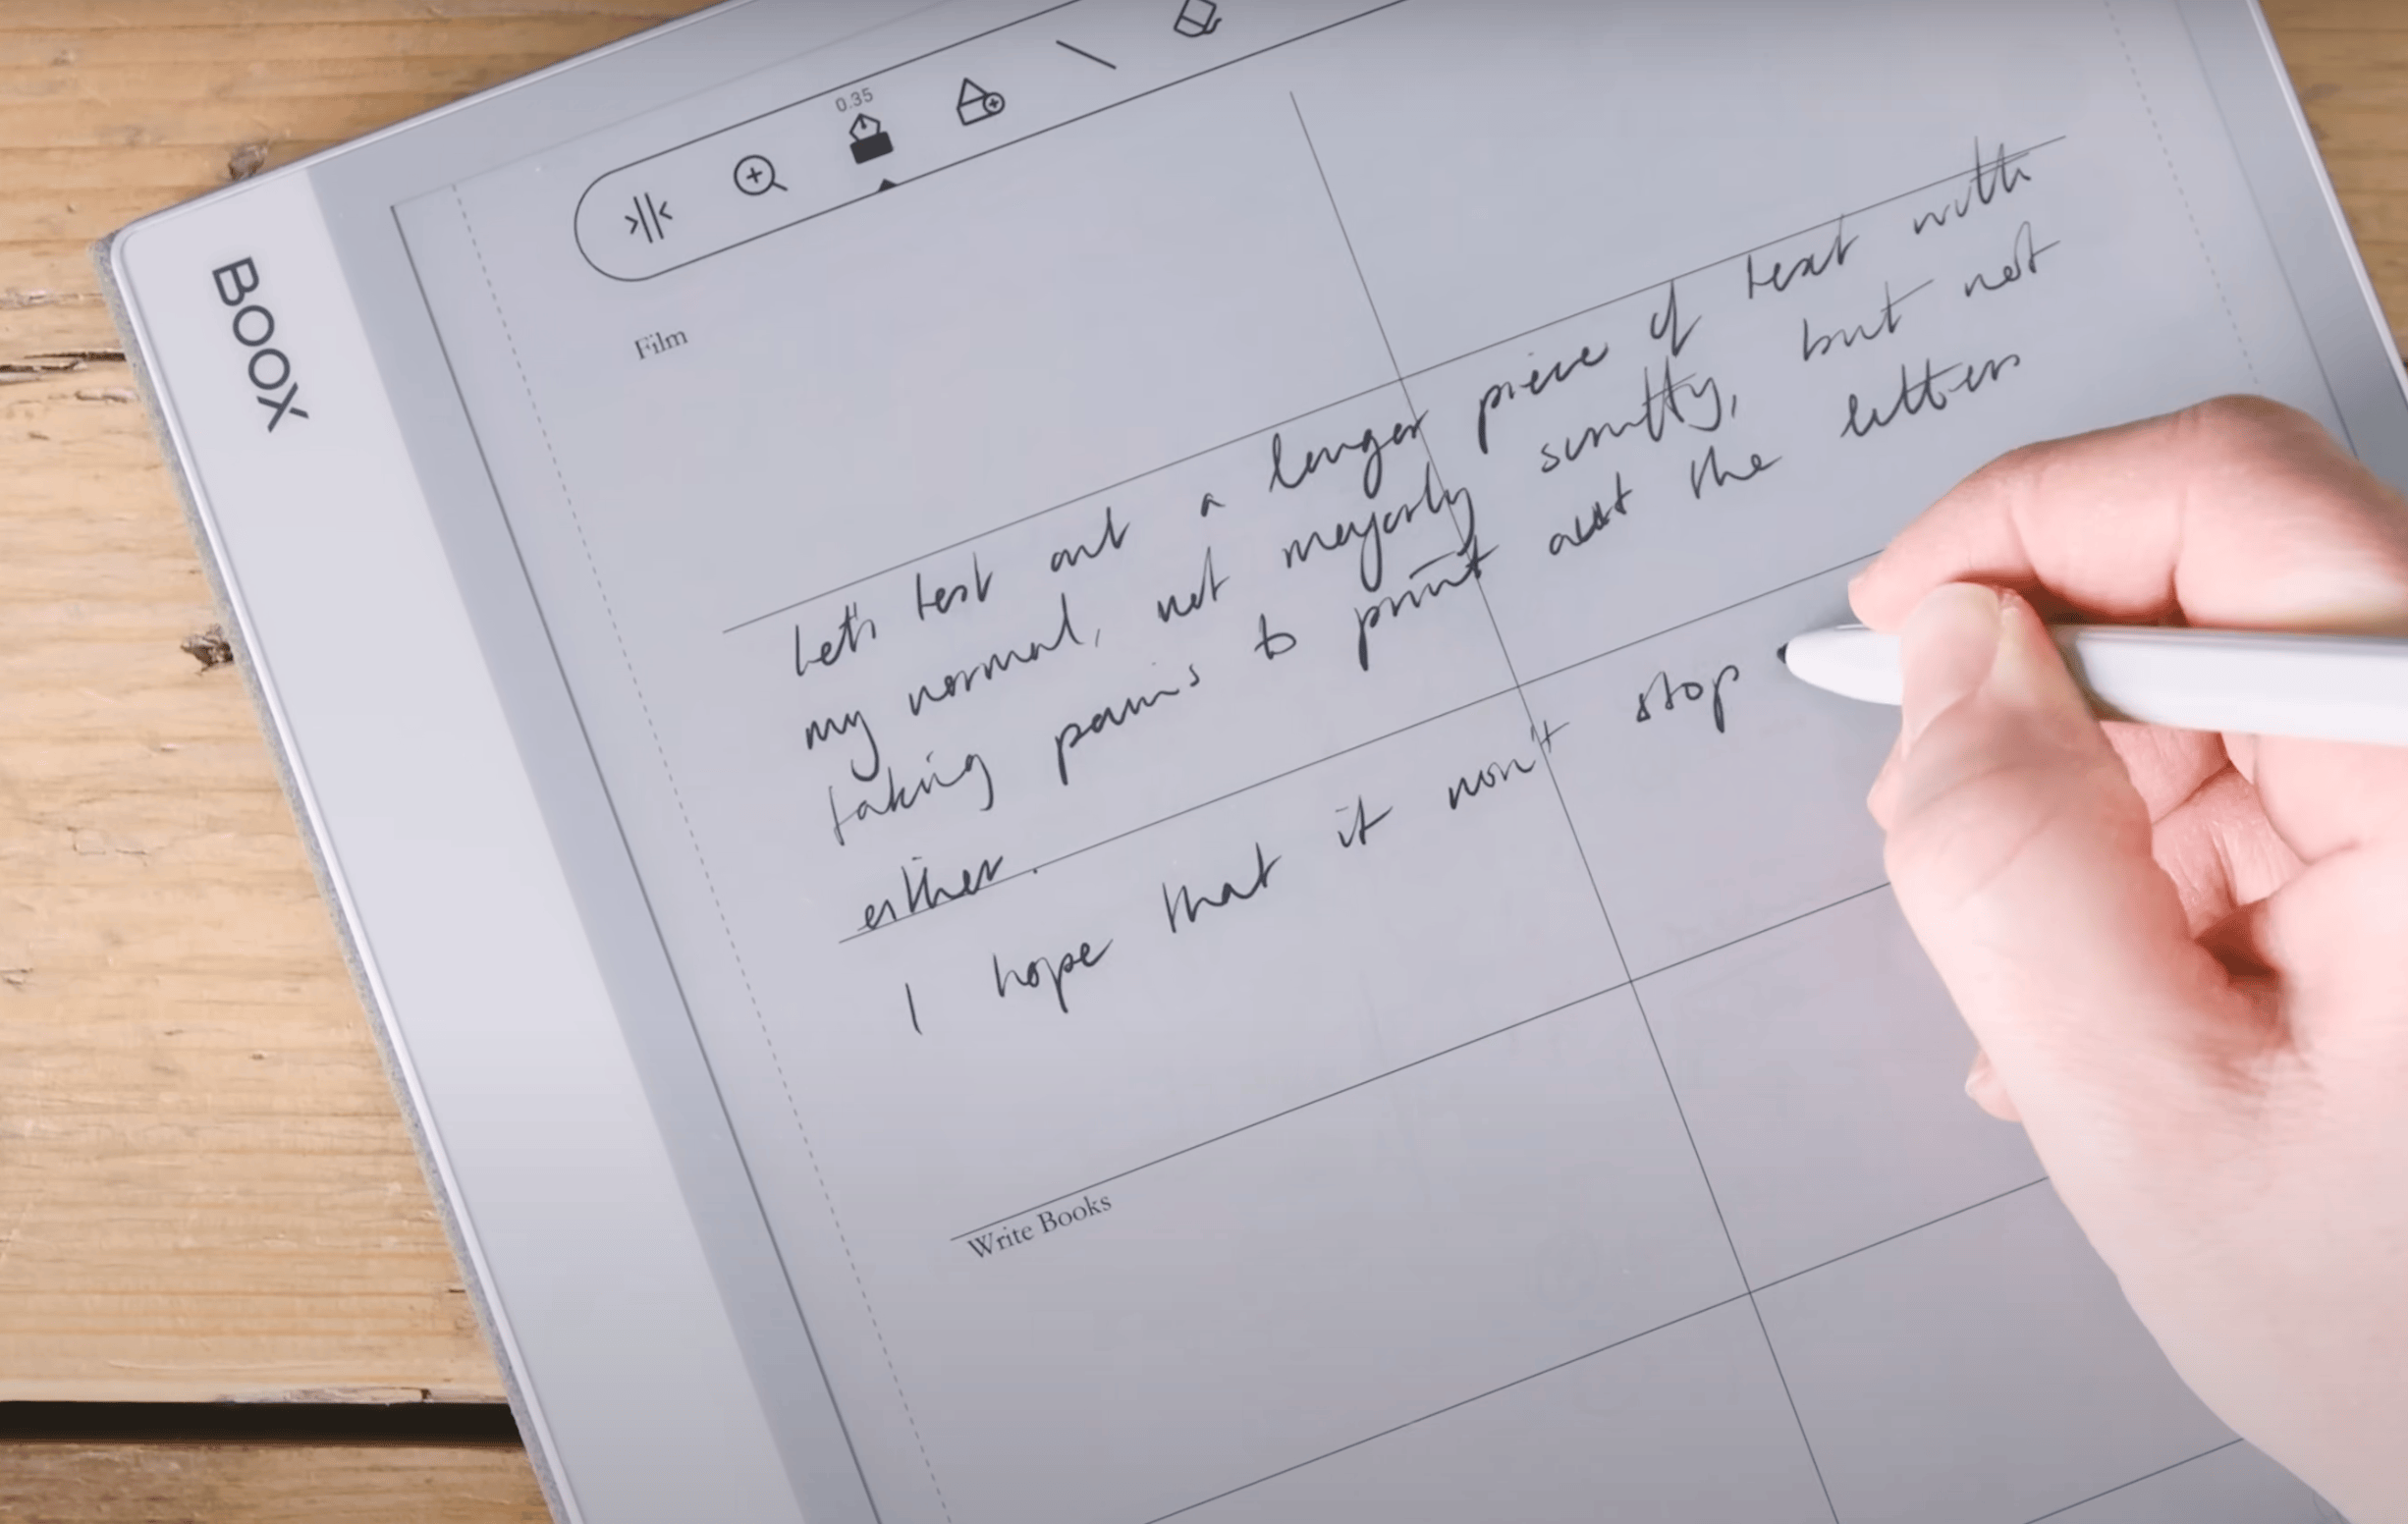 BOOX
0.35
Film
Let's test out a longer piece of text with
my normal, not majorly scruffy, but not
taking pains to print out the letters
either.
I hope that it won't stop
Write Books